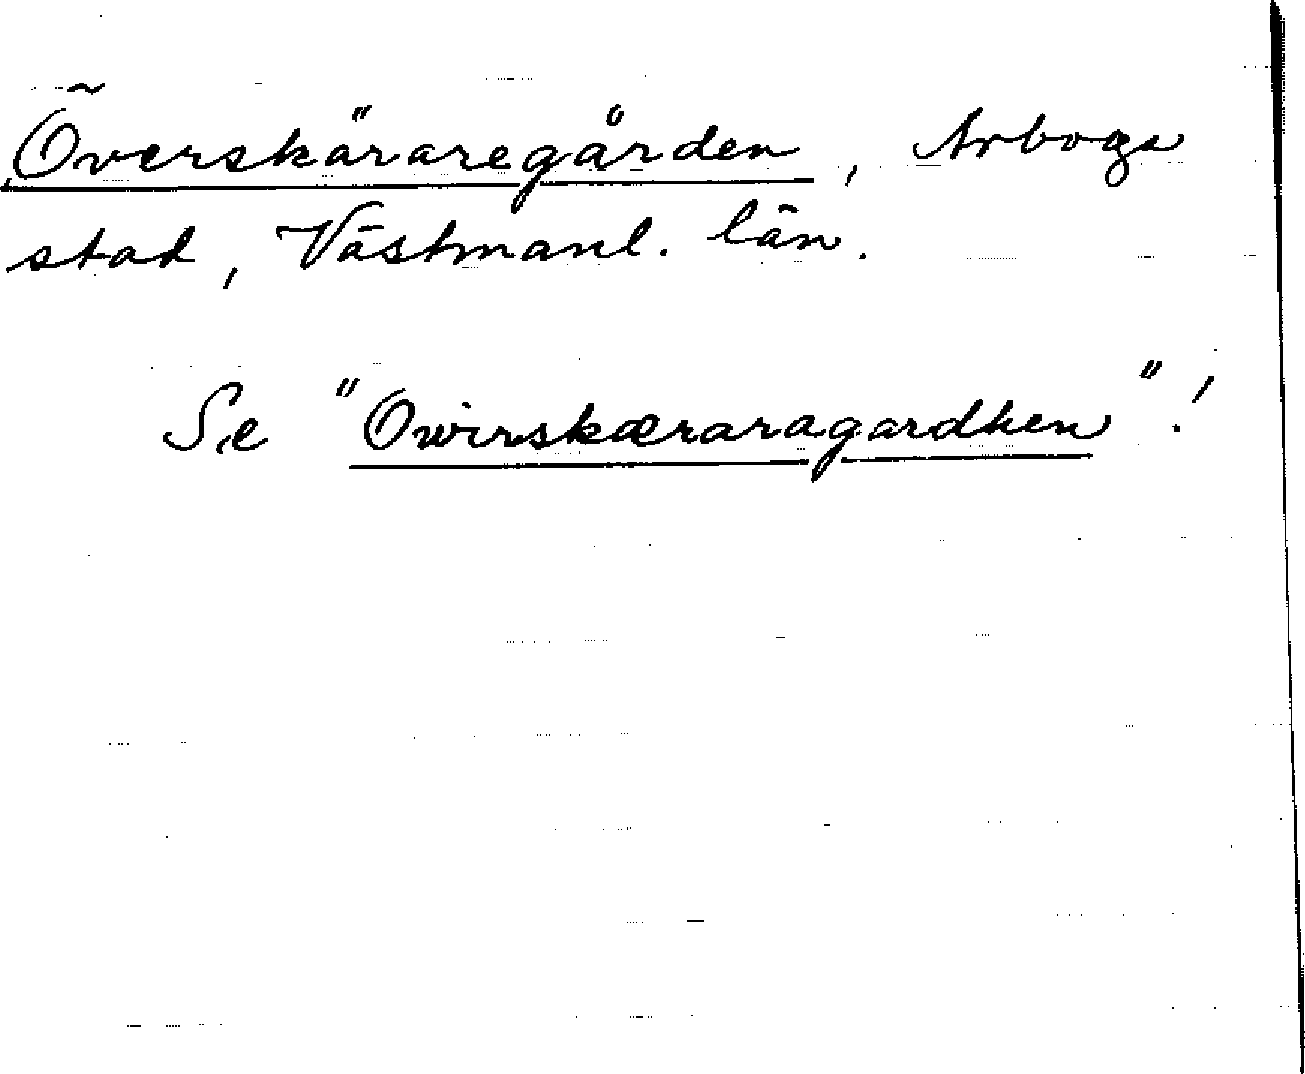 Överskäraregården, Arboga
stad, Västmanl. län.
Se "Owirskæraragardhen"!